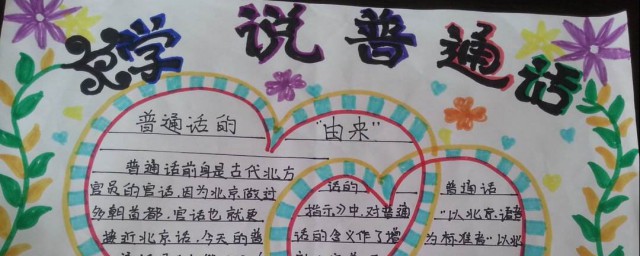 学说普通话
普通话的
"由来"
普通话前身是古代北方
官员的官话,因为北京做过
多朝首都,官话也就更
接近北京话,今天的普
话的
指示》中,对普通
话的含义作了增
普通话
"以北京语音
为标准音"以北